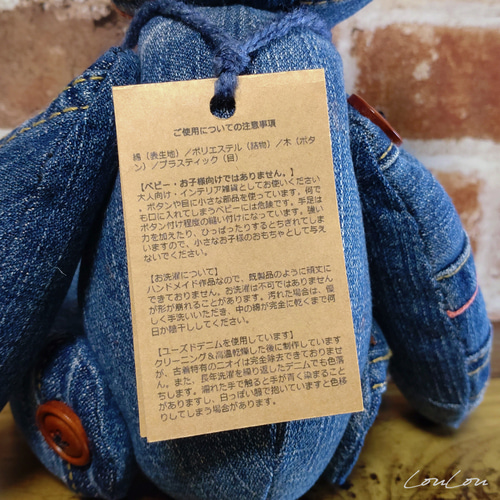 ご使用についての注意事項
綿（表生地）／ポリエステル（詰物）／木（ボタ
ン）／プラスティック（目）
【ベビー・お子様向けではありません。】
大人向け・インテリア雑貨としてお使いください
。ボタンや目に小さな部品を使っています。何で
も口に入れてしまうベビーには危険です。手足は
ボタン付け程度の縫い付けになっています。強い
力を加えたり、ひっぱったりするとちぎれてしま
いますので、小さなお子様のおもちゃとして与え
ないでください。
【お洗濯について】
ハンドメイド作品なので、既製品のように頑丈に
できておりません。お洗濯は不可ではありません
が形が崩れることがあります。汚れた場合は、優
しく手洗いいただき、中の綿が完全に乾くまで何
日か陰干ししてください。
【ユーズドデニムを使用しています】
クリーニング＆高温乾燥した後に制作しています
が、古着特有のニオイは完全除去できておりませ
ん。また、長年洗濯を繰り返したデニムでも色落
ちします。濡れた手で触ると手が青く染まること
がありますし、白っぽい服で抱いていますと色移
りしてしまう場合があります。
LouLou